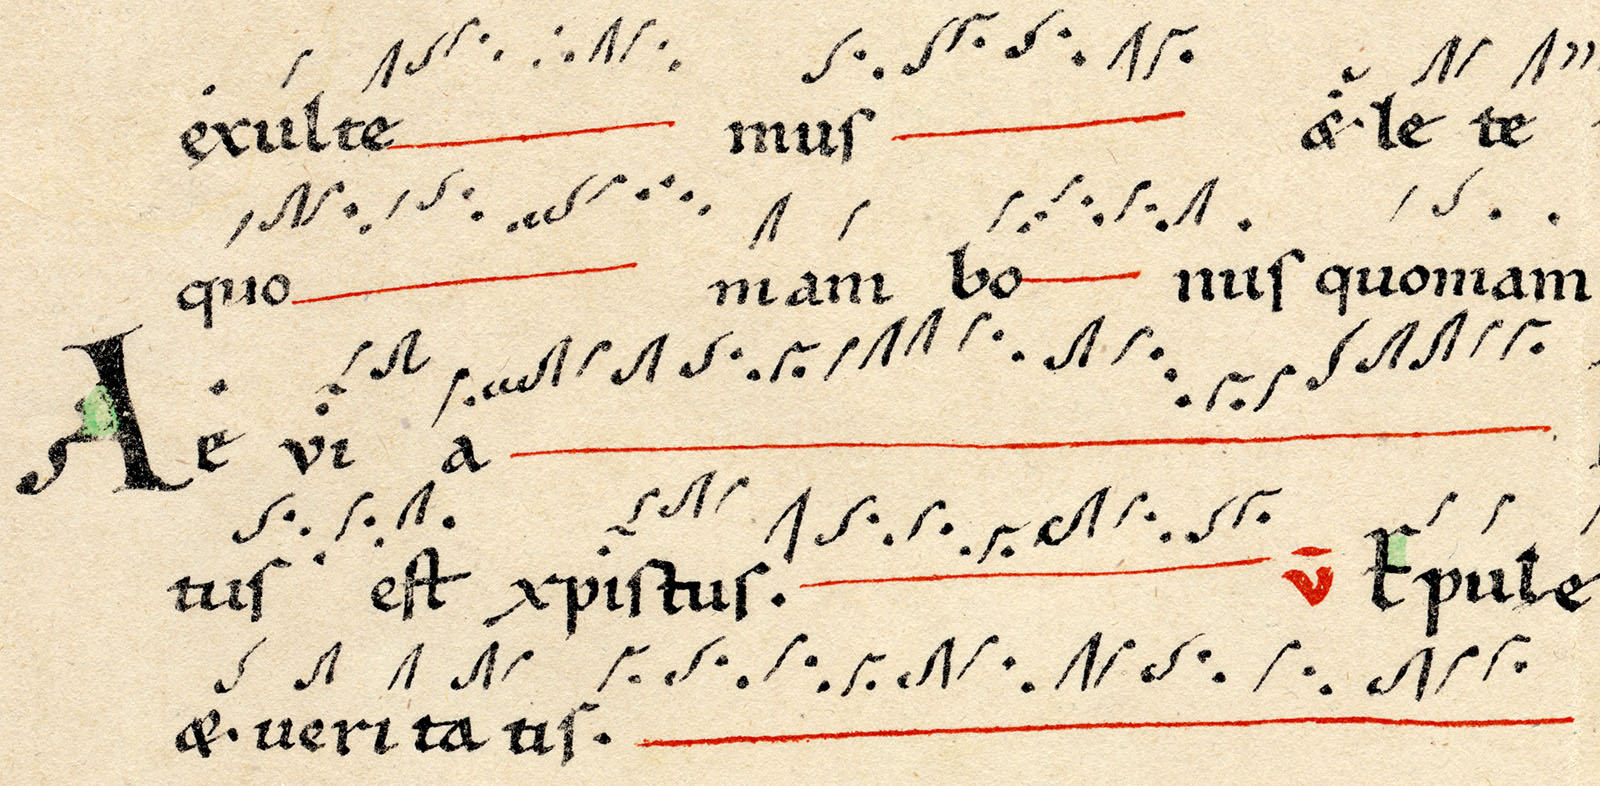 exulte mus & le te
quo niam bo nus quoniam
A e vi a
tus est xpistus. v̄ Epule
& ueri ta tis.